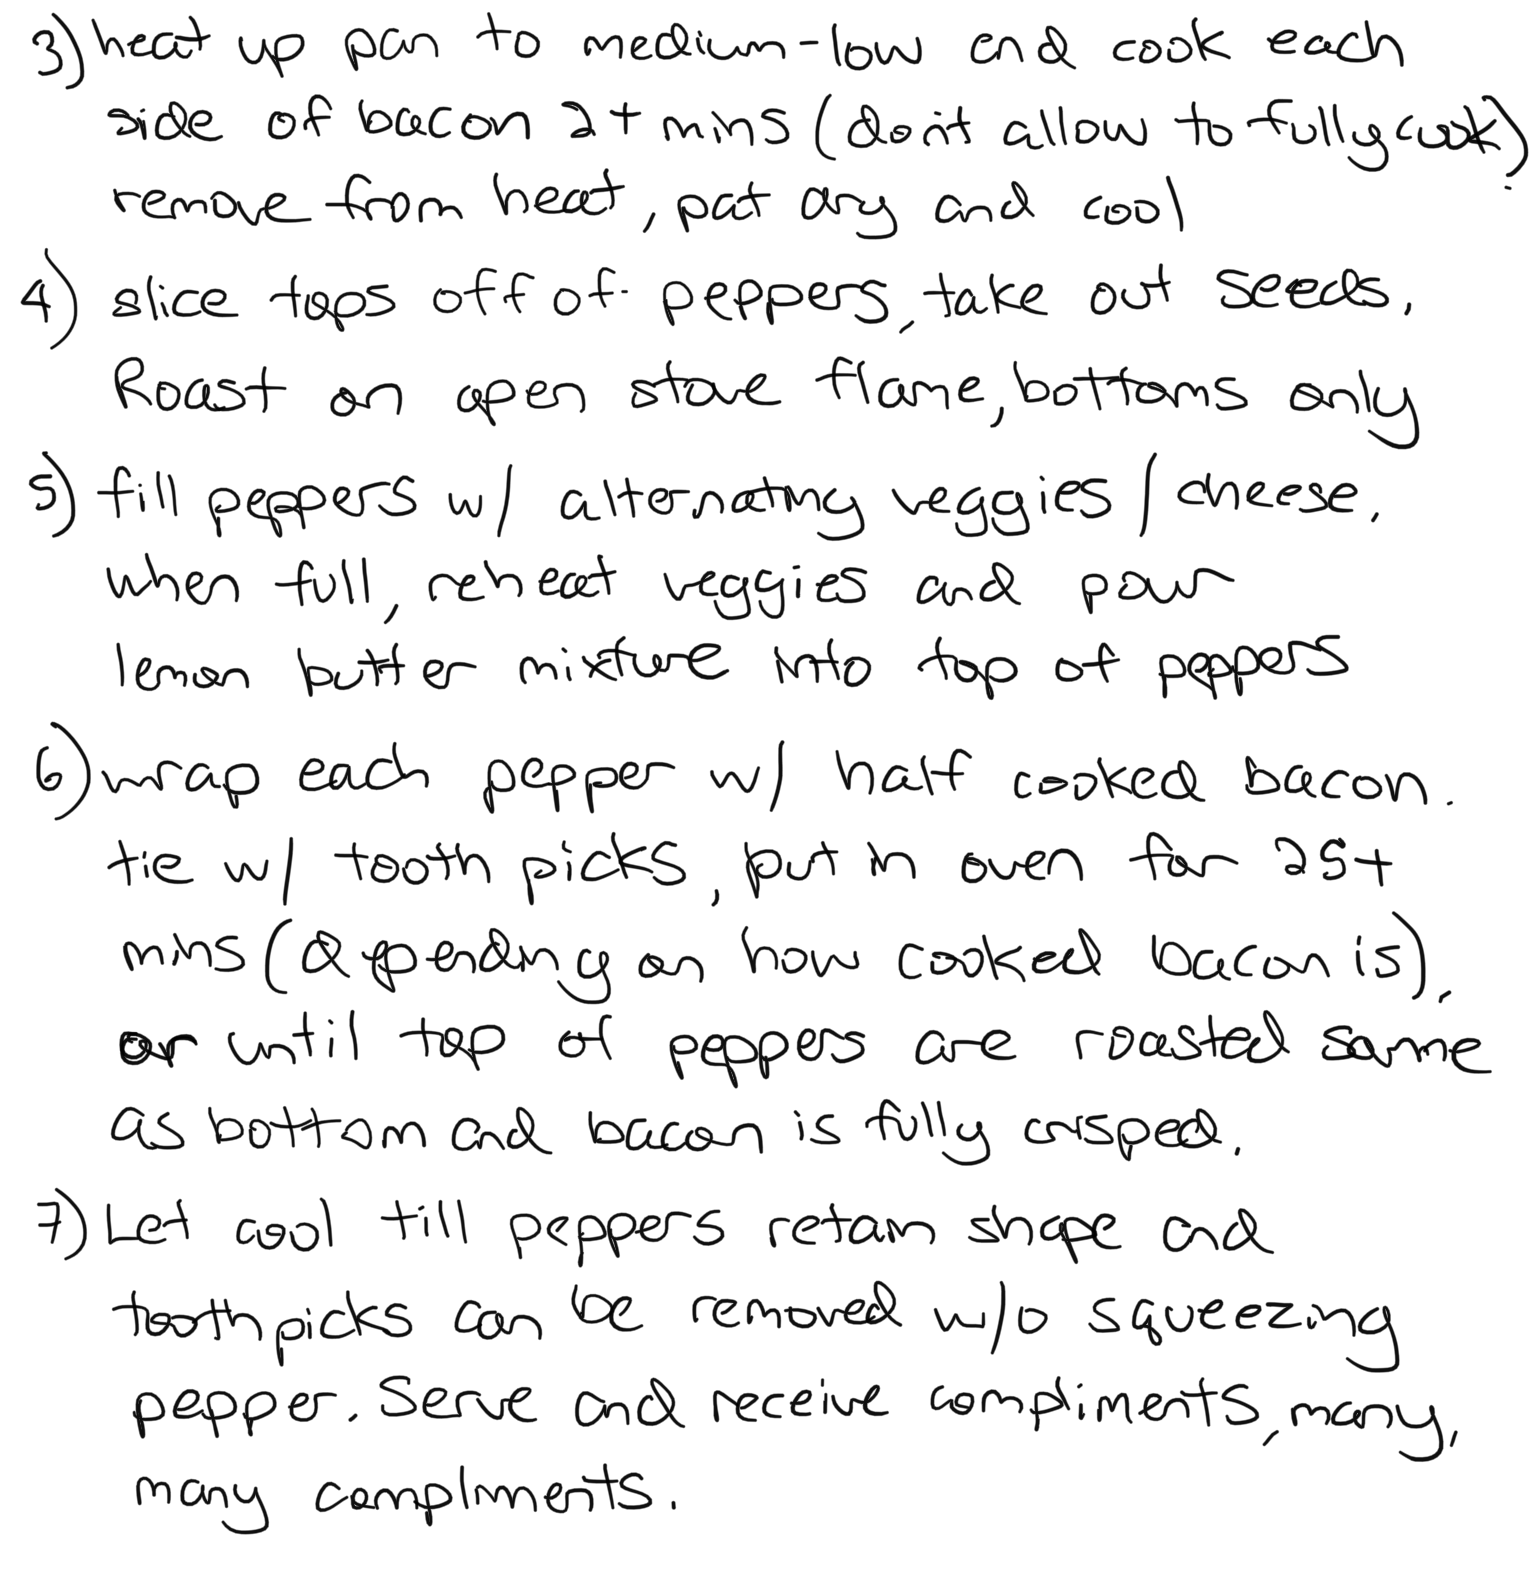 3) heat up pan to medium-low and cook each
side of bacon 2+ mins (don't allow to fully cook).
remove from heat, pat dry and cool
4) slice tops off of peppers, take out seeds.
Roast on open stove flame, bottoms only
5) fill peppers w/ alternating veggies / cheese.
when full, reheat veggies and pour
lemon butter mixture into top of peppers
6) wrap each pepper w/ half cooked bacon.
tie w/ tooth picks, put in oven for 25+
mins (depending on how cooked bacon is),
or until top of peppers are roasted same
as bottom and bacon is fully crisped.
7) Let cool till peppers retain shape and
toothpicks can be removed w/o squeezing
pepper. Serve and receive compliments, many,
many compliments.